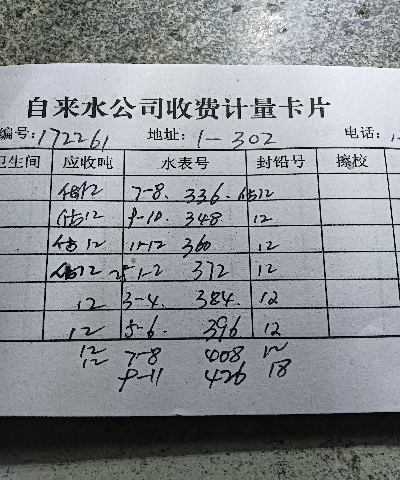 自来水公司收费计量卡片
编号:172261 地址:1-302 电话:
卫生间 应收吨 水表号 封铅号 擦校
估12 7-8. 336. 估12
估12 9-10. 348 12
估12 11-12 360 12
估12 1-2 372 12
12 3-4. 384. 12
12 5-6. 396 12
12 7-8 408 12
12 9-11 426 18